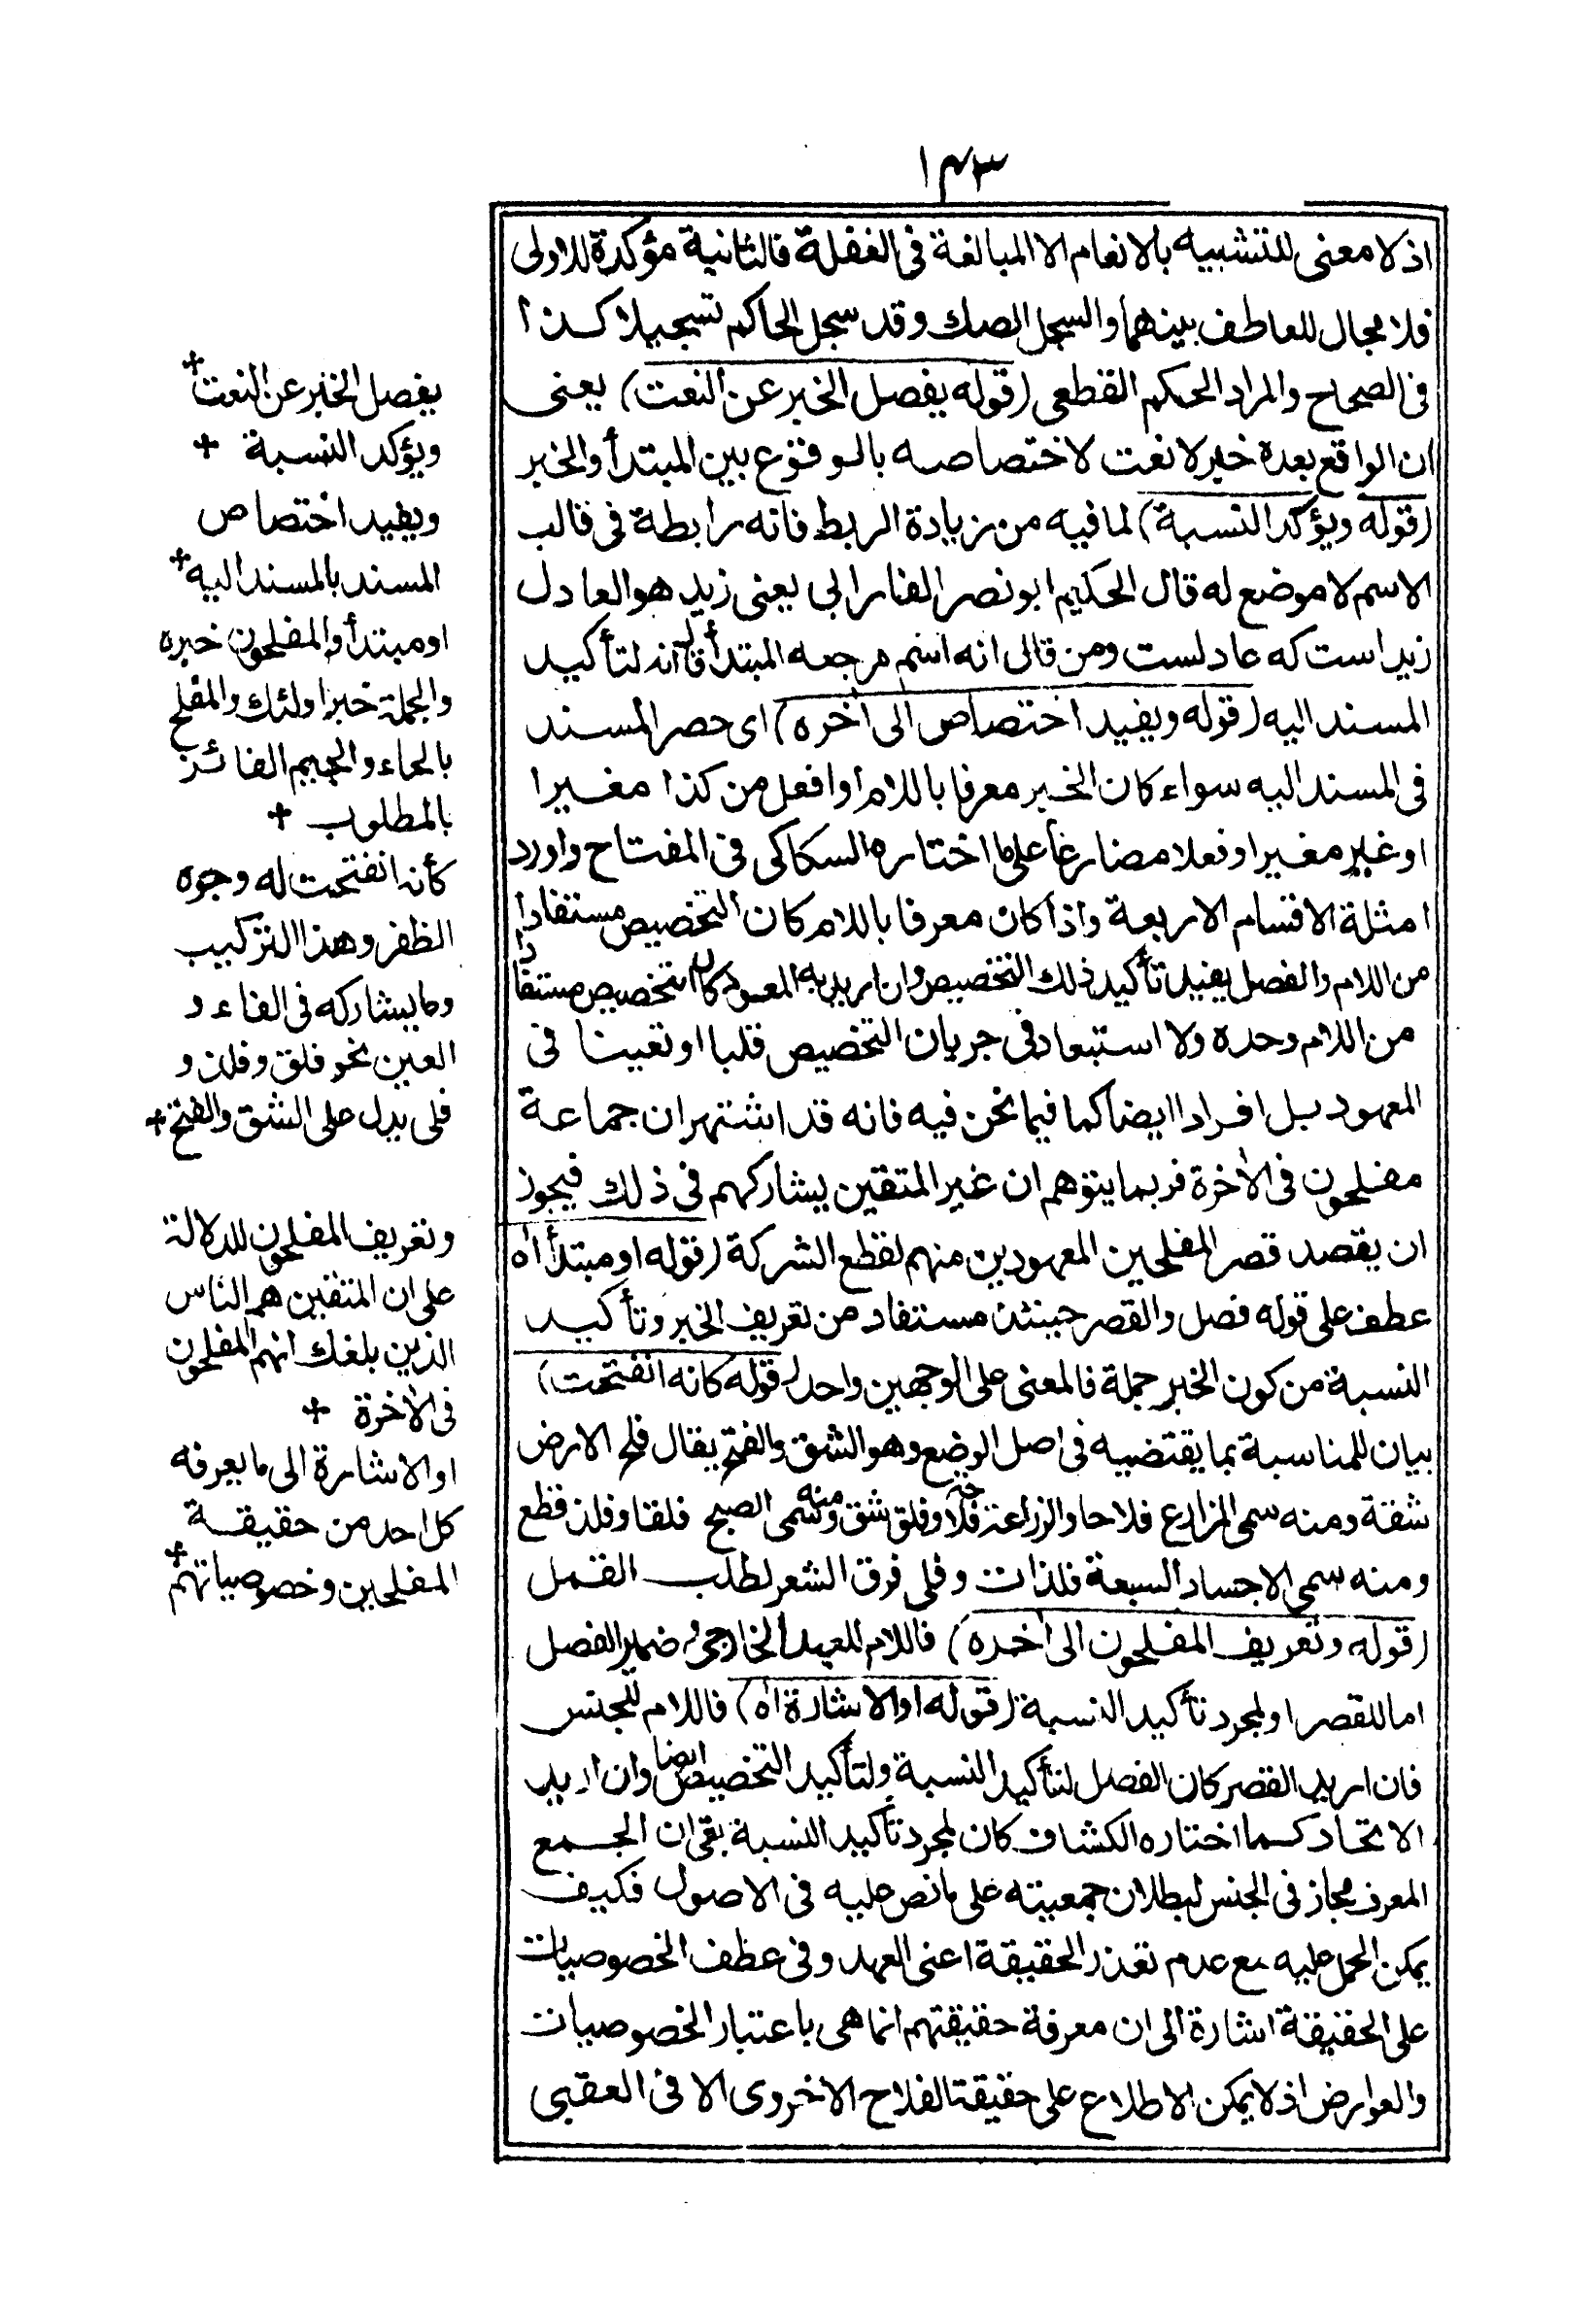 ١٤٣
اذ لا معنى للتشبيه بالانعام الا المبالغة فى الغفلة فالثانية مؤكدة للاولى
فلا مجال للعاطف بينهما والسجل الصك وقد سجل الحاكم تسجيلا كذا
فى الصحاح والمراد الحكم القطعى (قوله يفصل الخبر عن النعت) يعنى
ان الواقع بعده خبر لا نعت لاختصاصه بالوقوع بين المبتدأ والخبر
(قوله ويؤكد النسبة) لما فيه من زيادة الربط فانه رابطة فى قالب
الاسم لا موضع له قال الحكيم ابو نصر الفارابى يعنى زيد هو العادل
زيد است كه عادلست ومن قال انه اسم مرجعه المبتدأ قال انه لتأكيد
المسند اليه (قوله ويفيد اختصاص الى أخره) اى حصر المسند
فى المسند اليه سواء كان الخبر معرفا باللام او افعل من كذا مغيرا
او غير مغير او فعلا مضارعا على ما اختاره السكاكى فى المفتاح واورد
امثلة الاقسام الاربعة واذا كان معرفا باللام كان التخصيص مستفادا
من اللام والفصل يفيد تأكيد ذلك التخصيص وان اريد به المعهود كان التخصيص مستفادا
من اللام وحده ولا استبعاد فى جريان التخصيص قلبا او تعيينا فى
المعهود بل افرادا ايضا كما فيما نحن فيه فانه قد اشتهر ان جماعة
مفلحون فى الأخرة فربما يتوهم ان غير المتقين يشاركهم فى ذلك فيجوز
ان يقصد قصر المفلحين المعهودين منهم لقطع الشركة (قوله او مبتدأ اه
عطف على قوله فصل والقصر حينئذ مستفاد من تعريف الخبر وتأكيد
النسبة من كون الخبر جملة فالمعنى على الوجهين واحد (قوله كانه انفتحت)
بيان للمناسبة بما يقتضيه فى اصل الوضع وهو الشق والفتح يقال فلح الارض
شقة ومنه سمى المزارع فلاحا والزراعة فلاحة وفلق شق ومنه سمى الصبح فلقا وفلذ قطع
ومنه سمى الاجساد السبعة فلذات وفلى فرق الشعر لطلب القمل
(قوله وتعريف المفلحون الى أخره) فاللام للعهد الخارجى وضمير الفصل
اما للقصر او لمجرد تأكيد النسبة (قوله او الاشارة اه) فاللام للجنس
فان اريد القصر كان الفصل لتأكيد النسبة ولتأكيد التخصيص ايضا وان اريد
الاتحاد كما اختاره الكشاف كان لمجرد تأكيد النسبة بقى ان الجمع
المعرف مجاز فى الجنس لبطلان جمعيته على ما نص عليه فى الاصول فكيف
يمكن الحمل عليه مع عدم تعذر الحقيقة اعنى العهد وفى عطف الخصوصيات
على الحقيقة اشارة الى ان معرفة حقيقتهم انما هى باعتبار الخصوصيات
والعوارض اذ لا يمكن الاطلاع على حقيقة الفلاح الاخروى الا فى العقبى
يفصل الخبر عن النعت
ويؤكد النسبة
ويفيد اختصاص
المسند بالمسند اليه
او مبتدأ والمفلحون خبره
والجملة خبر اولئك والمفلح
بالحاء والجيم الفائز
بالمطلوب
كأنه انفتحت له وجوه
الظفر وهذا التركيب
وما يشاركه فى الفاء و
العين نحو فلق وفلذ و
فلى يدل على الشق والفتح
وتعريف المفلحون للدلالة
على ان المتقين هم الناس
الذين بلغك انهم المفلحون
فى الأخرة
او الاشارة الى ما يعرفه
كل احد من حقيقة
المفلحين وخصوصياتهم